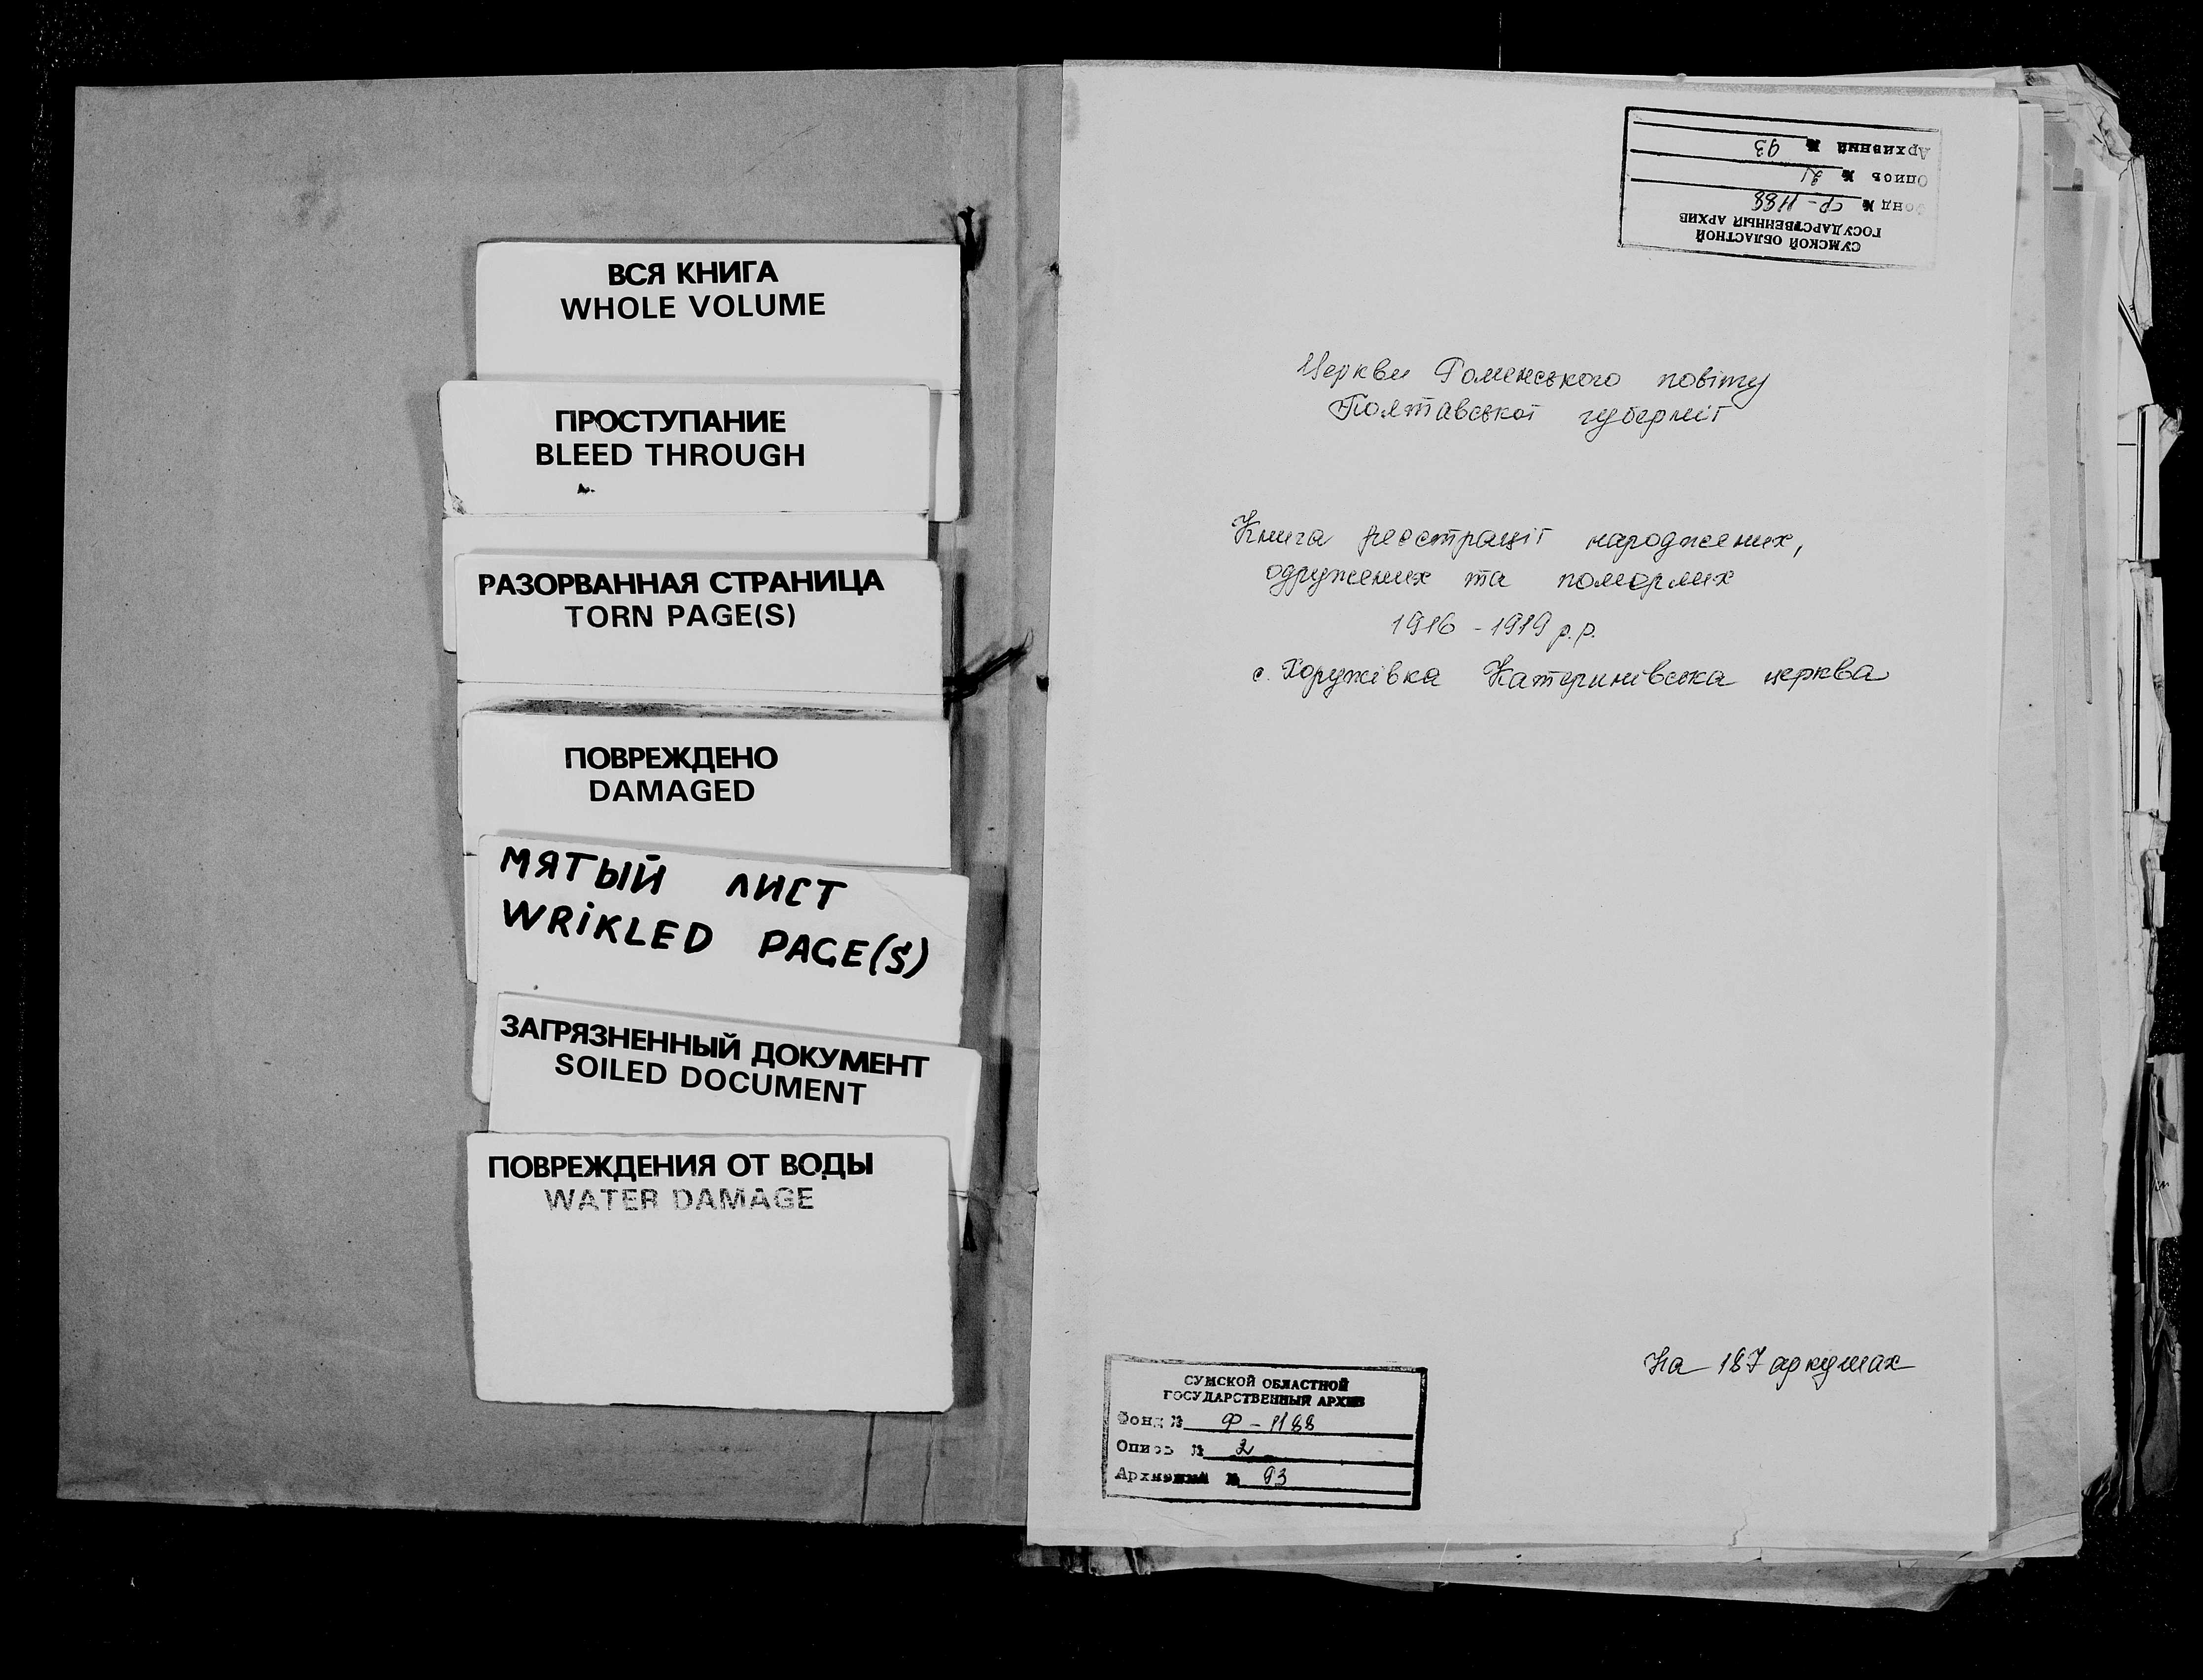 ВСЯ КНИГА
WHOLE VOLUME
ПРОСТУПАНИЕ
BLEED THROUGH
РАЗОРВАННАЯ СТРАНИЦА
TORN PAGE(S)
ПОВРЕЖДЕНО
DAMAGED
МЯТЫЙ ЛИСТ
WRIKLED PAGE(S)
ЗАГРЯЗНЕННЫЙ ДОКУМЕНТ
SOILED DOCUMENT
ПОВРЕЖДЕНИЯ ОТ ВОДЫ
WATER DAMAGE
СУМСКОЙ ОБЛАСТНОЙ
ГОСУДАРСТВЕННЫЙ АРХИВ
Фонд № Ф-1188
Опись № 2
Архивный № 93
Церкви Роменського повіту
Полтавської губернії
Книга реєстрації народжених,
одружених та померлих
1916 - 1919 р.р.
с. Хоружівка Катеринівська церква
На 187 аркушах
СУМСКОЙ ОБЛАСТНОЙ
ГОСУДАРСТВЕННЫЙ АРХИВ
Фонд № Ф-1188
Опись № 2
Архивный № 93